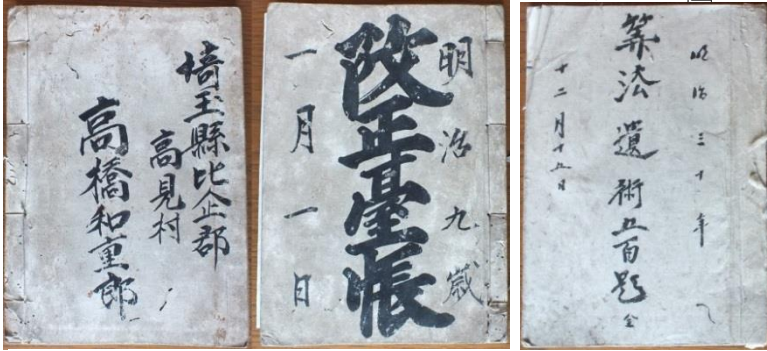 埼玉縣比企郡
高見村
高橋和重郎
明治九歳
改正臺帳
一月一日
明治三十年
算法遺術五百題 全
十二月十五日